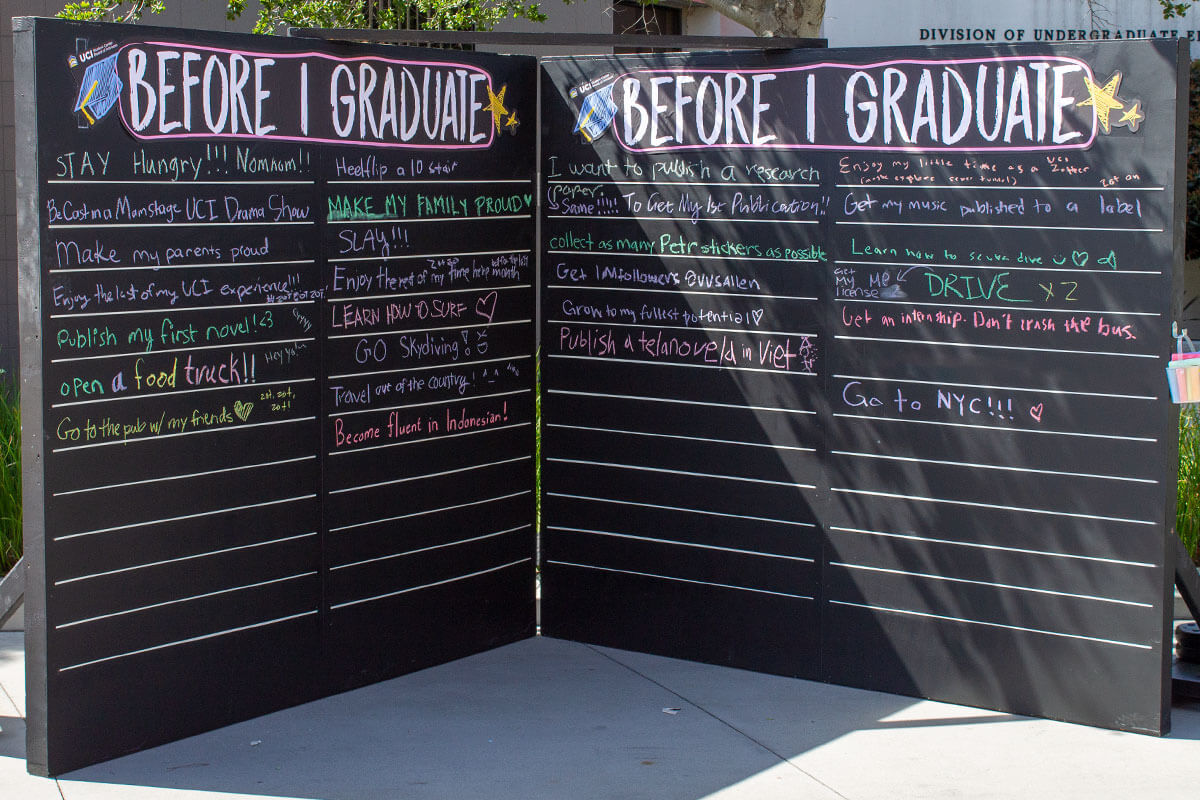 UCI
BEFORE I GRADUATE
STAY Hungry!!! Nomnom!!
Be Cast in a Mainstage UCI Drama Show
Make my parents proud
Enjoy the last of my UCI experience!!!
zot zot zot!
Publish my first novel! <3
open a food truck!!
Go to the pub w/ my friends
zot, zot,
zot!
Heelflip a 10 stair
MAKE MY FAMILY PROUD
SLAY!!!
Enjoy the rest of my time here
month
LEARN HOW TO SURF
GO Skydiving!
Travel out of the country! ^_^
Become fluent in Indonesian!
UCI
BEFORE I GRADUATE
I want to publish a research
paper.
Same!!!! To Get My 1st Publication!!
collect as many Petr stickers as possible
Get 1M followers @vvsallen
Grow to my fullest potential
Publish a telanovela in Viet
Enjoy my little time as a UCI Zotter
zot on
Get my music published to a label
Learn how to scuba dive
GET
MY ME
license
DRIVE x2
Get an internship. Don't crash the bus.
Go to NYC!!!
DIVISION OF UNDERGRADUATE